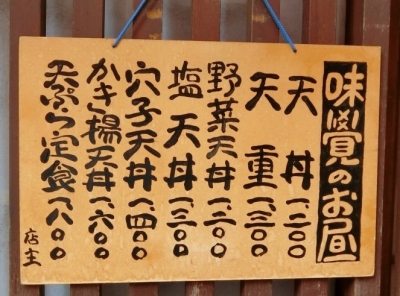 味覺のお昼
天丼 一、二〇〇
天重 一、三〇〇
野菜天丼 一、二〇〇
塩天丼 一、三〇〇
穴子天丼 一、四〇〇
かき揚天丼 一、六〇〇
天ぷら定食 一、八〇〇
店主